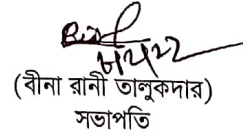 (বীনা রানী তালুকদার)
সভাপতি